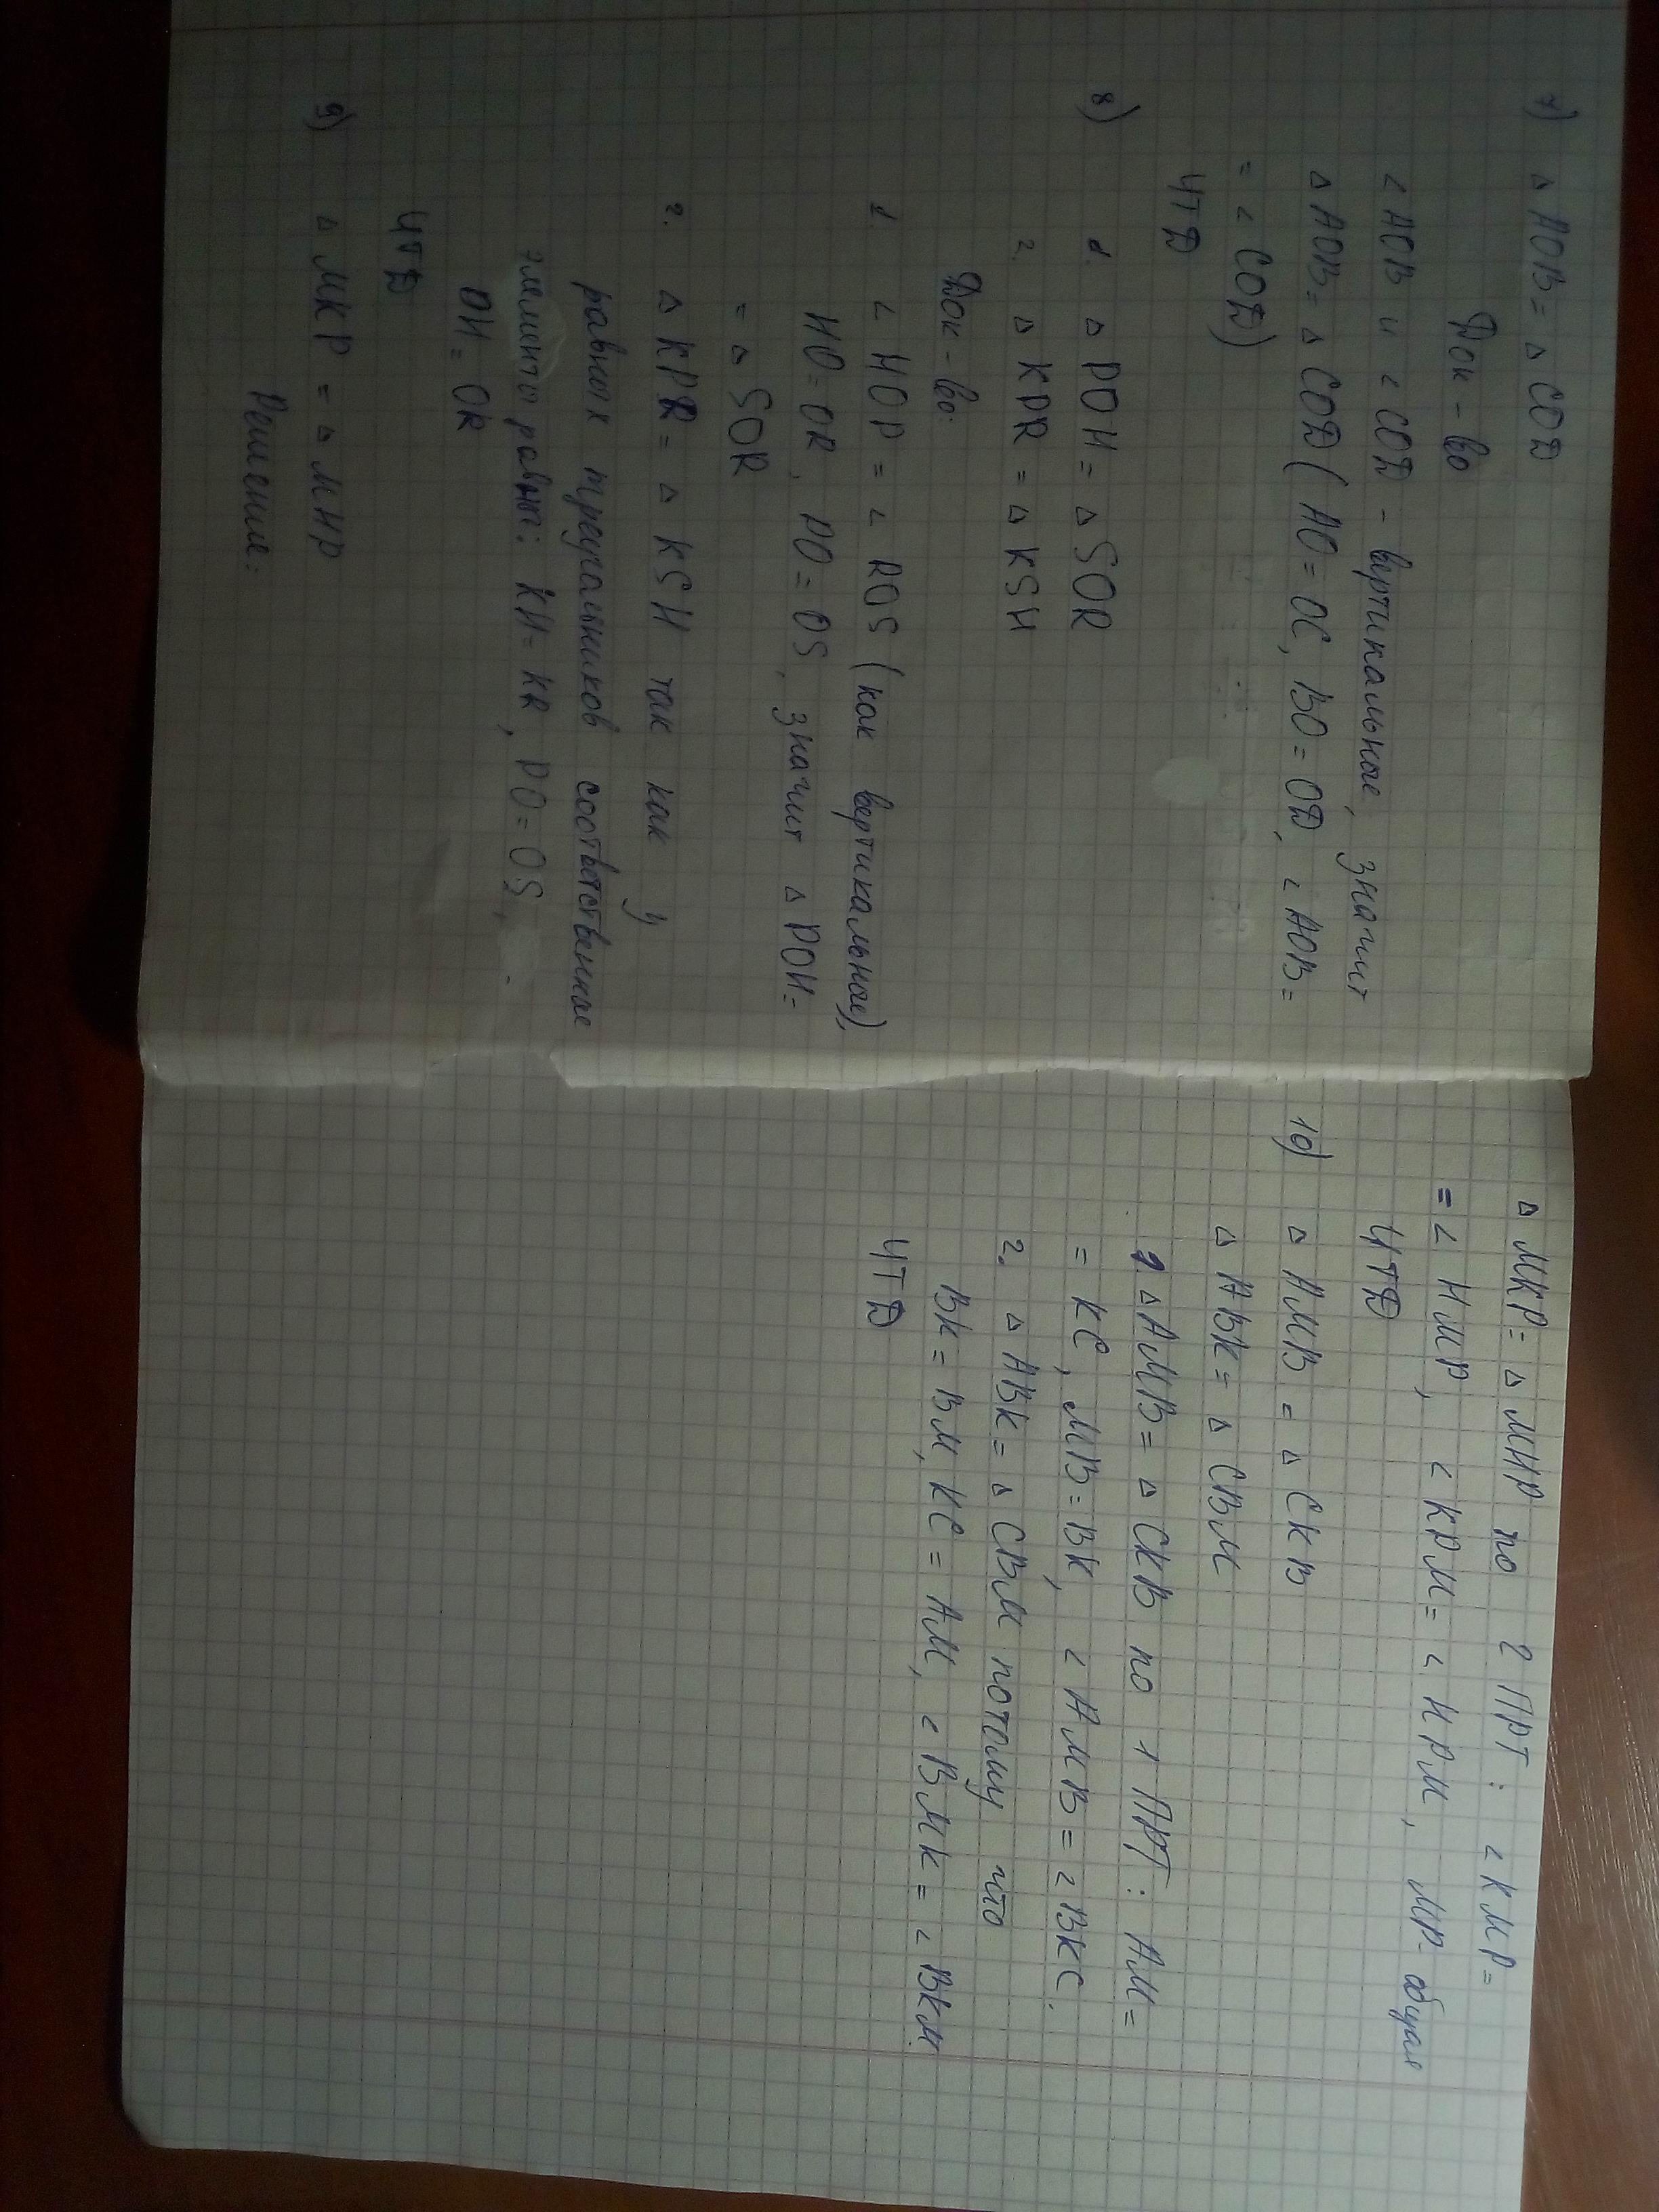 7) △ AOB = △ COD
Док-во
∠ AOB и ∠ COD - вертикальные, значит
△ AOB = △ COD (AO = OC, BO = OD, ∠ AOB =
= ∠ COD)
ЧТД
8) 1. △ POH = △ SOR
2. △ KPR = △ KSH
Док-во:
1. ∠ HOP = ∠ ROS (как вертикальные),
HO = OR, PO = OS, значит △ POH =
= △ SOR
2. △ KPR = △ KSH так как у
равных треугольников соответственные
элементы равны: KH = KR, PO = OS,
OH = OR
ЧТД
9) △ MKP = △ MHP
Решение:
△ MKP = △ MHP по 2 ПРТ: ∠ KMP =
= ∠ HMP, ∠ KPM = ∠ HPM, MP - общая
ЧТД
10) △ AMB = △ CKB
△ ABK = △ CBM
1. △ AMB = △ CKB по 1 ПРТ: AM =
= KC, MB = BK, ∠ AMB = ∠ BKC.
2. △ ABK = △ CBM потому что
BK = BM, KC = AM, ∠ BMK = ∠ BKM.
ЧТД